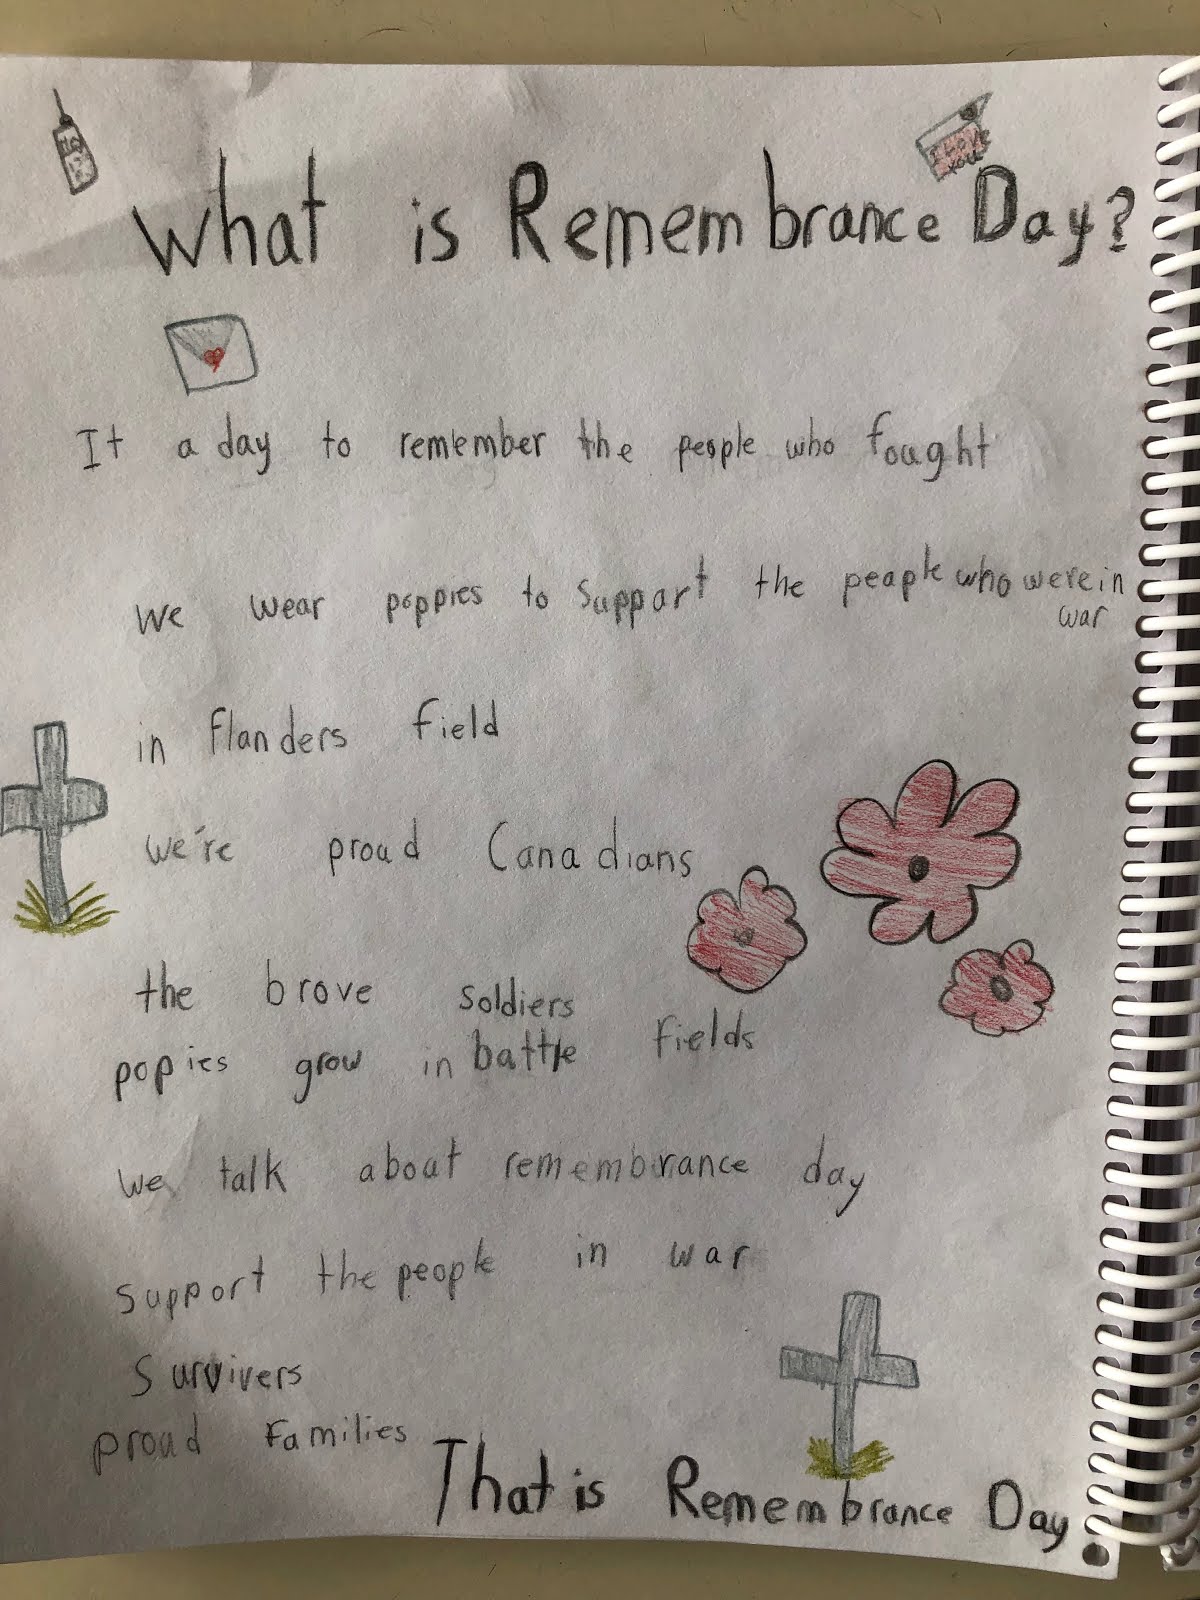 What is Remembrance Day?
I LOVE YOU
It a day to remember the people who fought
we wear poppies to support the peaple who were in
war
in flanders field
we're proud Canadians
the brove soldiers
popies grow in battle fields
we talk about remembrance day
support the people in war
Survivers
proud Families
That is Remembrance Day